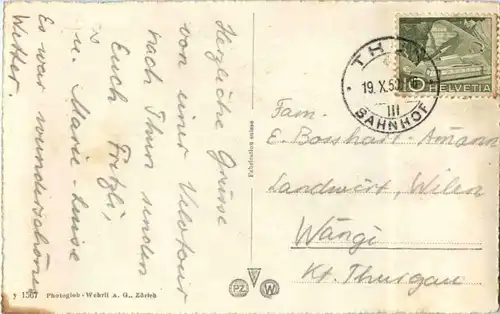 Herzliche Grüsse
von einer Velotour
nach Thun senden
Euch Fritzli,
u. Marie-Luise
Es war wunderschönes
Wetter.
Fabrication suisse
THUN
19.X.53
III
BAHNHOF
10 HELVETIA
Fam.
E. Bosshart-Amann
Landwirt, Wilen
Wängi
Kt. Thurgau
y 1567 Photoglob-Wehrli A. G., Zürich
PZ
W